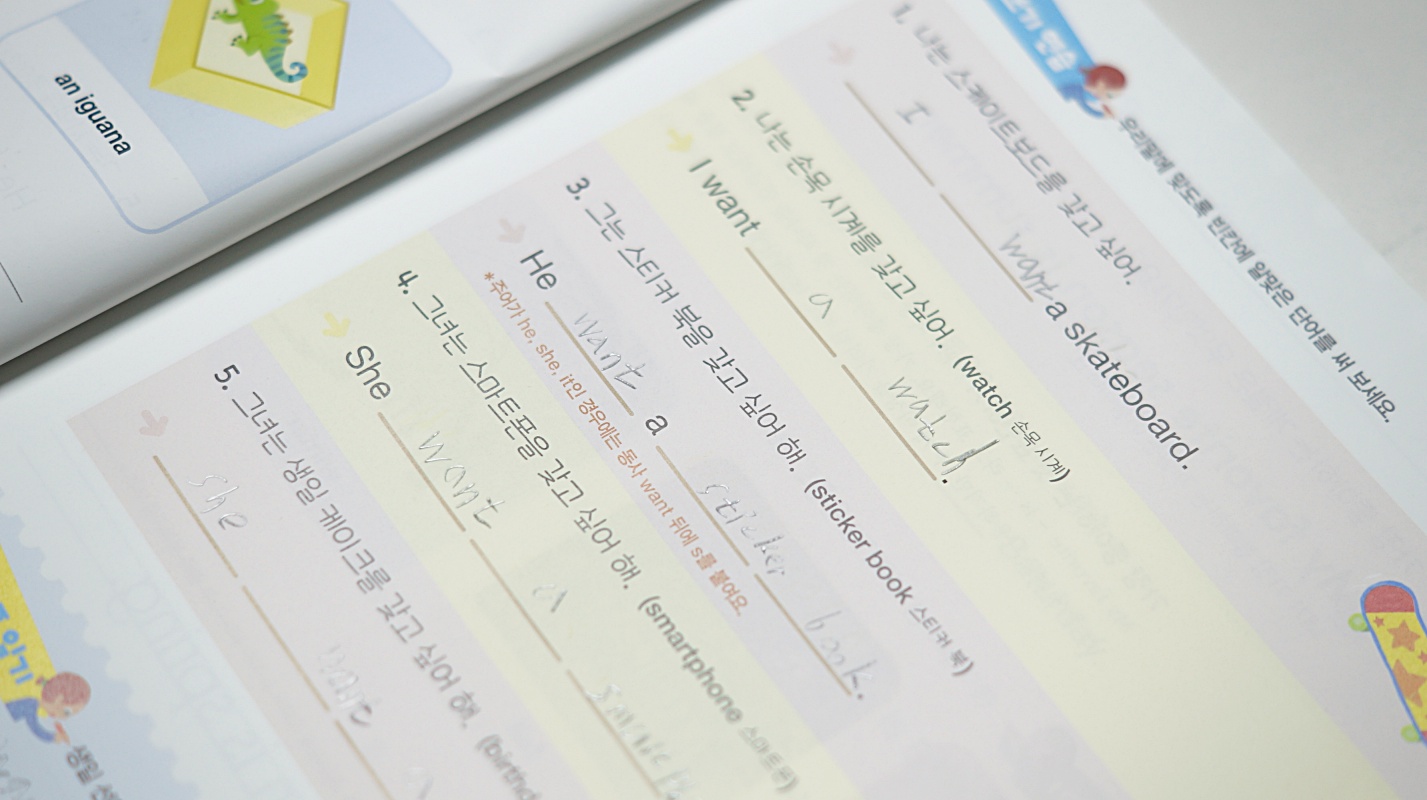 an iguana
우리말에 맞도록 빈칸에 알맞은 단어를 써 보세요.
1. 나는 스케이트보드를 갖고 싶어.
I want a skateboard.
2. 나는 손목 시계를 갖고 싶어. (watch 손목 시계)
I want a watch.
3. 그는 스티커 북을 갖고 싶어 해. (sticker book 스티커 북)
He want a sticker book.
*주어가 he, she, it인 경우에는 동사 want 뒤에 s를 붙여요.
4. 그녀는 스마트폰을 갖고 싶어 해. (smartphone 스마트폰)
She want a
5. 그녀는 생일 케이크를 갖고 싶어 해. (birthd
she want a
생일